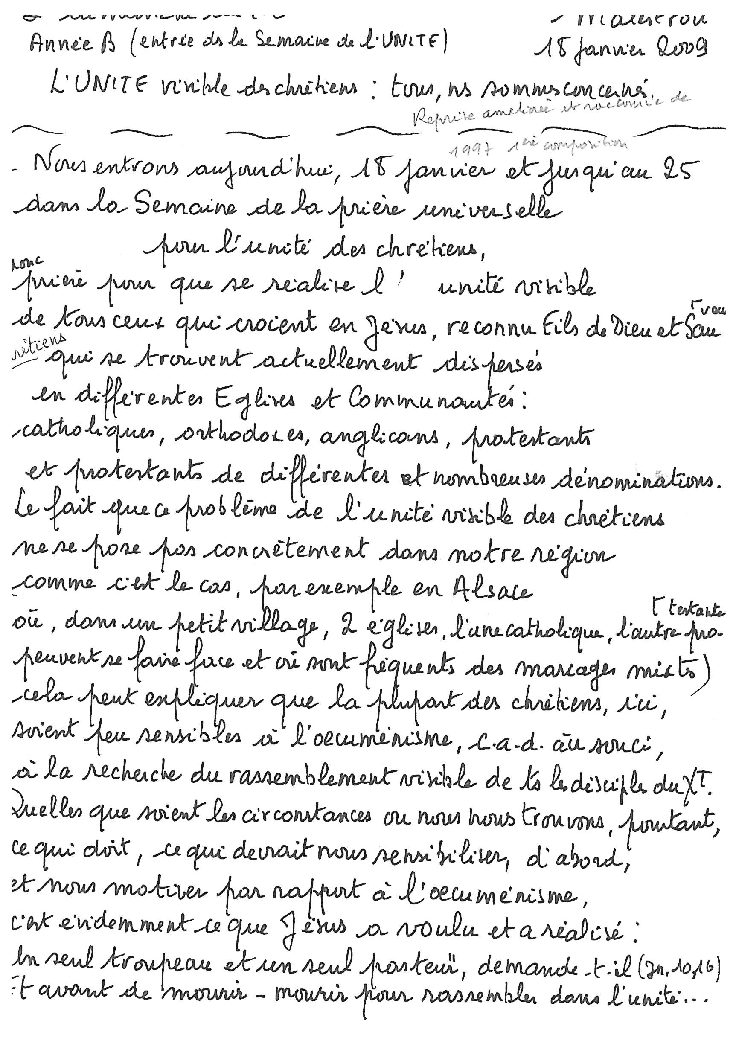 Malestroit
Année B (entrée ds la Semaine de l'UNITE)
18 janvier 2009
L'UNITE visible des chrétiens : tous, ns sommes concernés.
Reprise améliorée et raccourcie de
1997 1ère composition
- Nous entrons aujourd'hui, 18 janvier et jusqu'au 25
dans la Semaine de la prière universelle
pour l'unité des chrétiens,
donc
prière pour que se réalise l' unité visible
de tous ceux qui croient en Jésus, reconnu Fils de Dieu et Sau
veur
rétiens qui se trouvent actuellement dispersés
en différentes Eglises et Communautés :
catholiques, orthodoxes, anglicans, protestants
et protestants de différentes et nombreuses dénominations.
Le fait que ce problème de l'unité visible des chrétiens
ne se pose pas concrètement dans notre région
comme c'est le cas, par exemple en Alsace
où, dans un petit village, 2 églises, l'une catholique, l'autre pro-
testante
peuvent se faire face et où sont fréquents des mariages mixts)
cela peut expliquer que la plupart des chrétiens, ici,
soient peu sensibles à l'oecuménisme, c.a.d. au souci,
à la recherche du rassemblement visible de ts les disciples du XT.
Quelles que soient les circonstances où nous nous trouvons, pourtant,
ce qui doit, ce qui devrait nous sensibiliser, d'abord,
et nous motiver par rapport à l'oecuménisme,
c'est évidemment ce que Jésus a voulu et a réalisé :
Un seul troupeau et un seul pasteur, demande-t-il (Jn, 10,16)
Et avant de mourir - mourir pour rassembler dans l'unité...